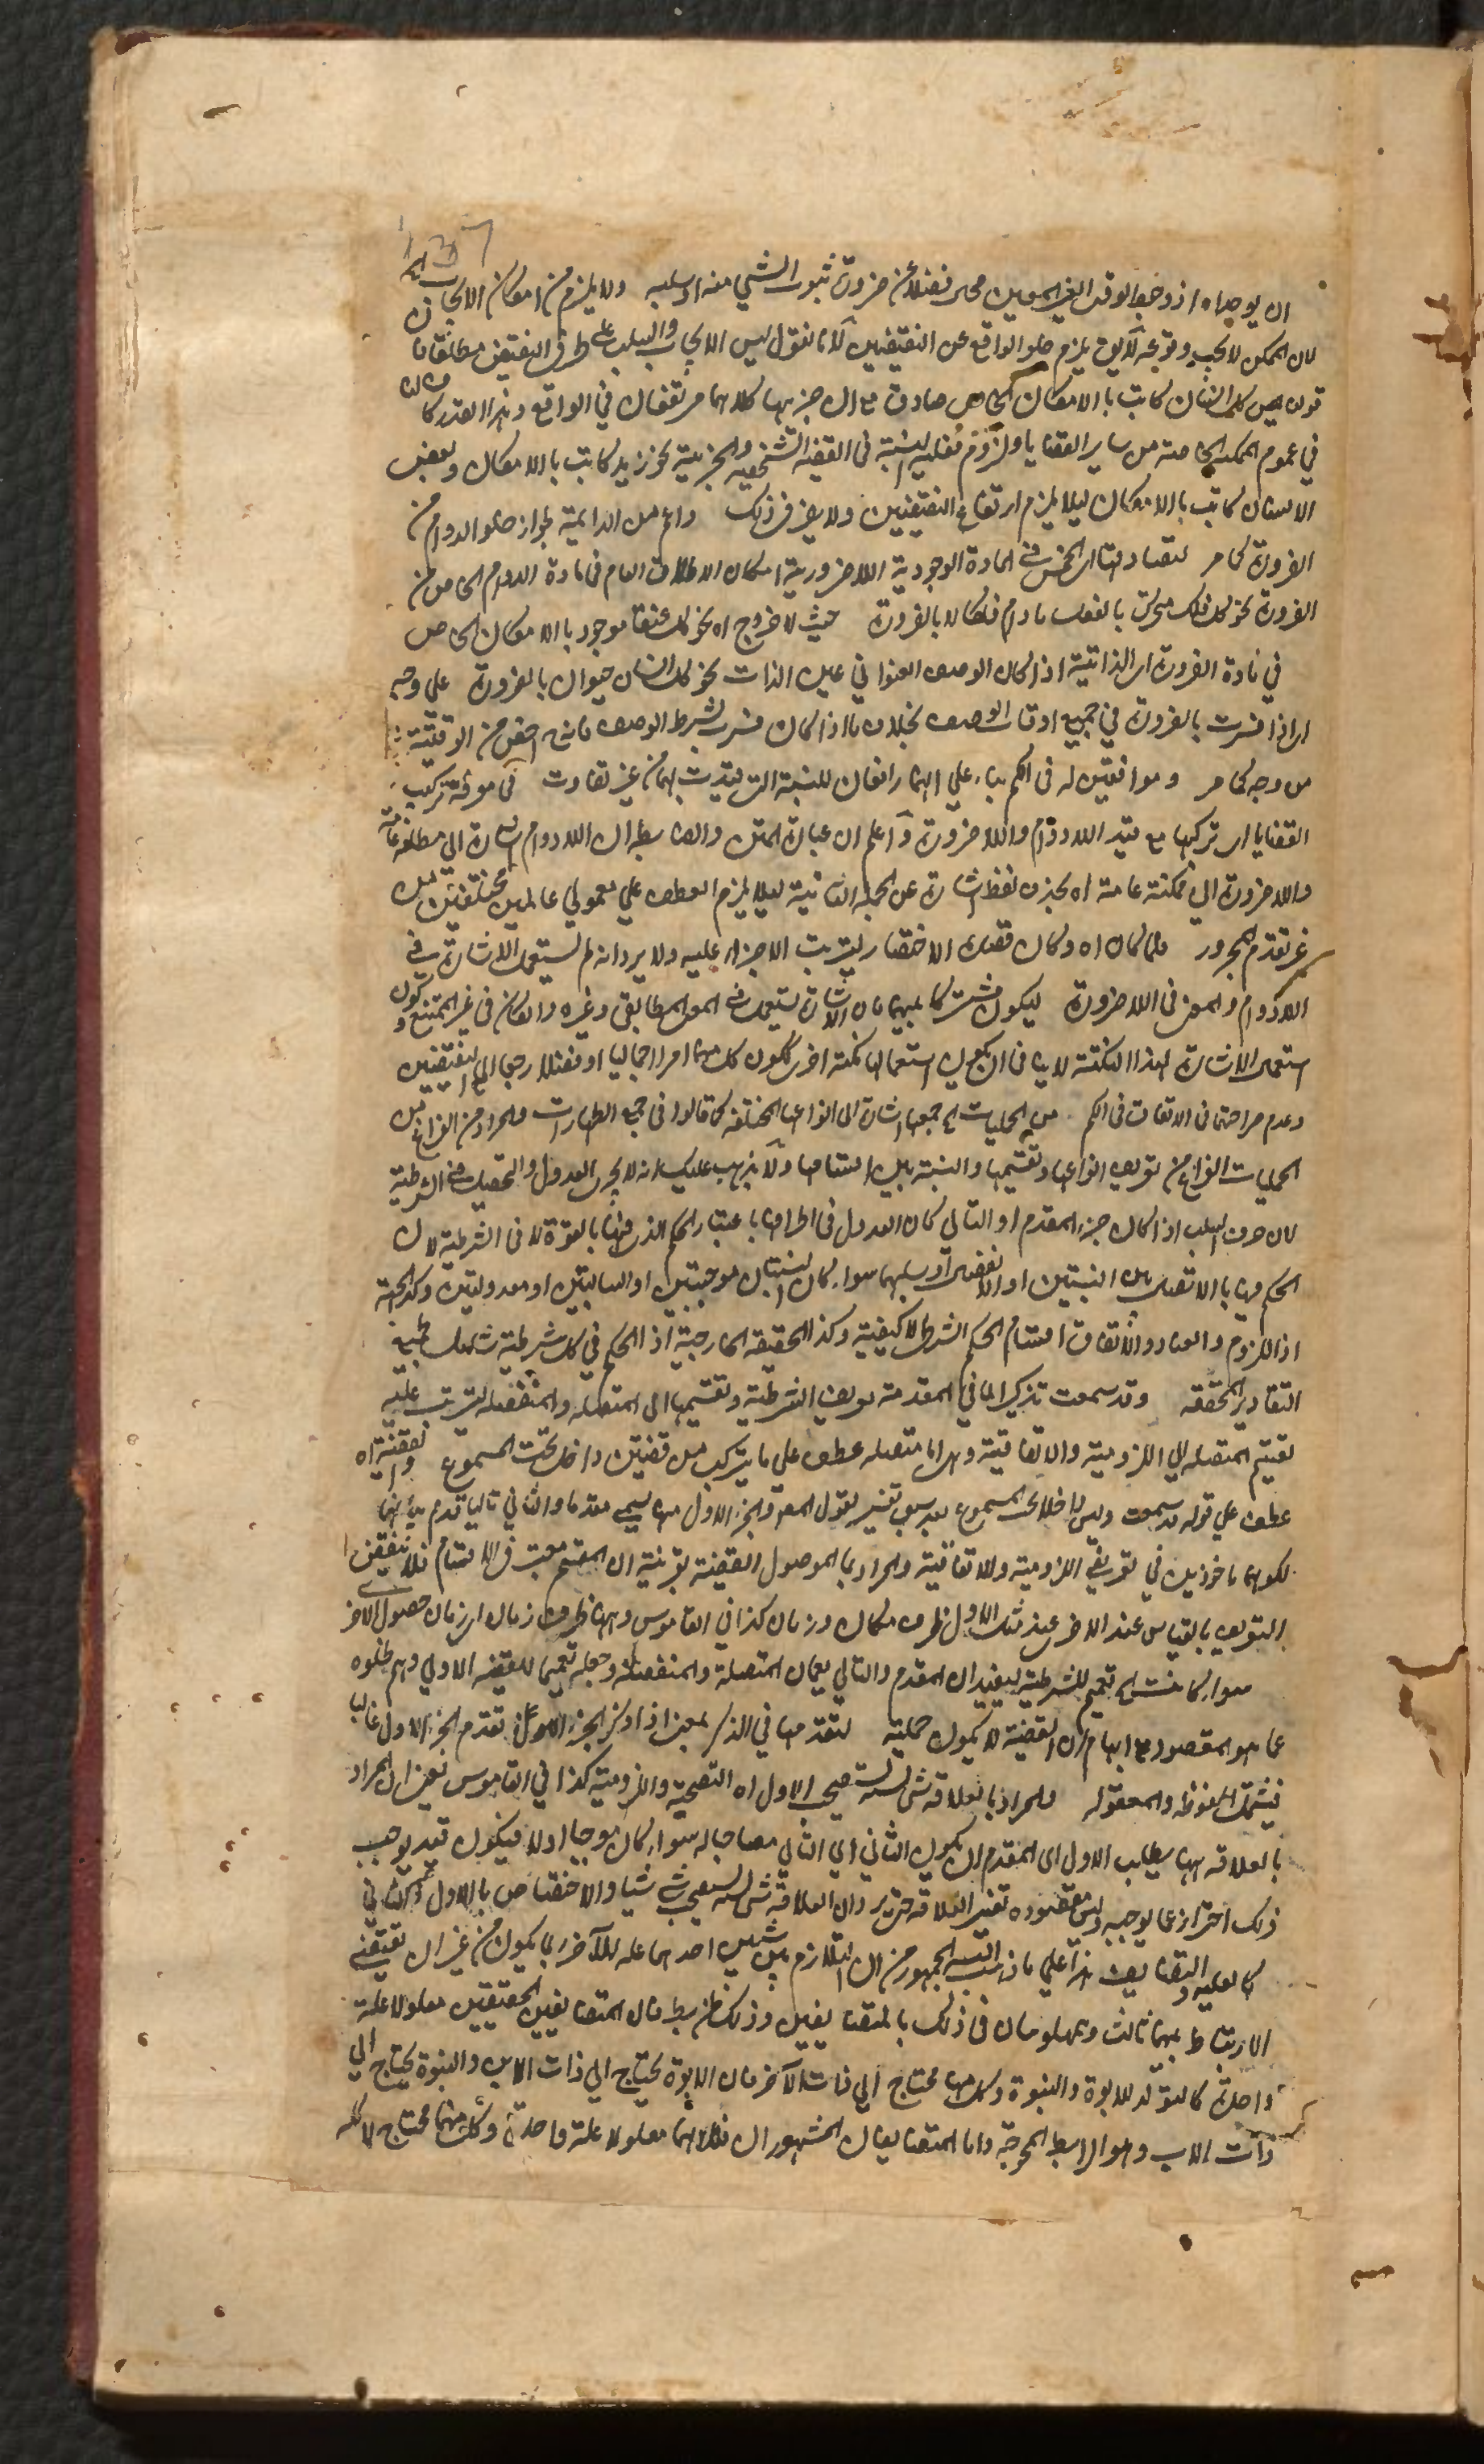 137
ان يوجداه اذ وجود الوقت الغير المعين محى فضلا عن ضرورة ثبوت الشيئ منه او سلبه ولا يلزم من امكان الايجاب اه
لان الممكن لا يجب وقوعه لا يق يلزم خلو الواقع عن النقيضين لانا نقول ليس الايجاب والسلب على طرفى النقيض مطلقا فان
قولنا كل انسان كاتب بالامكان الخاص صادق مع ان جزئيها كلاهما مرتفعان في الواقع وهذا القدر كاف
في عموم الممكنة الخاصة من ساير القضايا ولزوم فعلية النسبة فى القضية الشخصية والجزئية نحو زيد كاتب بالامكان وبعض
الانسان كاتب بالامكان ليلا يلزم ارتفاع النقيضين ولا يضر فى ذلك واعم من الدايمة لجواز خلو الدوام من
الضرورة كما مر لتصادقتا اى الخمس في المادة الوجودية اللاضرورية امكان الاطلاق العام فى مادة الدوام الخاص من
الضرورة نحو كل فلك متحرك بالفعل مادام فلكا لا بالضرورة حيث لا خروج اه نحو كل عنقا موجود بالامكان الخاص
في مادة الضرورة اى الذاتية اذا كان الوصف العنوانى عين الذات نحو كل انسان حيوان بالضرورة على وجه
اى اذا فسرت بالضرورة في جميع اوقات الوصف بخلاف ما اذا كان فسرت بشرط الوصف فانه اخص من الوقتية
من وجه كما مر وموافقتين له فى الكم بناء على انهما رافعان للنسبة التى قيدت بهما من غير تفاوت فى معرفة تركيب
القضايا اى تركبها مع قيد اللادوام واللاضرورة واعلم ان عبارة المتن والضابطه ان اللادوام اشارة الى مطلقة عامة
واللاضرورة الى ممكنة عامة اه بحذف لفظ اشارة عن الجملة الثانية ليلا يلزم العطف على معمولي عاملين مختلفين من
غير تقدم المجرور فلما كان اه وكان قصد الاختصار ليترتب الاجزاء عليه ولا يرد انه لم يستعمل الاشارة في
اللادوام والمعنى فى اللاضرورة ليكون مشتركا بينهما فان الاشارة تستعمل في المعنى المطابقى وغيره وان كان فى غير الممتنع وكون
استعمال الاشارة لهذا النكتة لا ينافى ان يكون استعمالها لنكتة اخرى ككون كل منهما امرا اجماليا او مفصلا رجعا الى النقيضين
وعدم صراحتها فى الاتفاق فى الكم من الحمليات اه جمعها اشارة الى انواعها المختلفة كما قالوا فى جمع الطهارات والمراد من الفراغ من
الحمليات الفراغ من تعريف انواعها وتقسيمها والنسبة بين اقسامها ولا يذهب عليك انه لا يجرى العدول والتحصيل في الشرطية
لان حرف السلب اذا كان جزء المقدم او التالي كان العدول فى اطرافها باعتبار الحكم الذى فيها بالقوة لا فى الشرطية لان
الحكم فيها بالاتصال بين النسبتين او الانفصال او سلبهما سواء كان النسبتان موجبتين او سالبتين او معدولتين وكذا الجهة
اذ اللزوم والعناد والاتفاق اقسام الحكم الشرطى لا كيفيته وكذا الحقيقة الخارجية اذ الحكم في كل شرطية شامل لجميع
التقادير المحققة وقد سمعت تذكير لما في المقدمة تعريف الشرطية وتقسيمها الى المتصلة والمنفصلة ليترتب عليه
تقسيم المتصلة الى اللزومية والاتفاقية وهى اما متصلة عطف على ما يتركب من قضيتين داخل تحت المسموع والقضية اه
عطف على قوله قد سمعت وليس داخلا تحت المسموع بقول المصـ والجزء الاول منها يسمى مقدما والثاني تاليا قدم بيانهما
لكونهما ماخوذين في تعريفى اللزومية والاتفاقية والمراد بما الموصول القضية بقرينة ان المقسم معتبر فى الاقسام فلا ينتقض
التعريف بالقياس عند الاخر عند مثلث الاول ظرف مكان وزمان كذا في القاموس وههنا ظرف زمان اى زمان حصول الاخر
سواء كانت اه تعميم للشرطية ليفيد ان المقدم والتالي يعمان المتصلة والمنفصلة وجعله تعميما للقضية الاولى وهم لخلوه
عما هو المقصود مع ايهام ان القضية لا يكون حملية لتقدمها في الذكر بمعنى اذا ذكر الجزء الاول تقدم الجزء الاول غالبا
فيشمل الملفوظة والمعقولة والمراد بالعلاقة شئ بسببه يستصحب الاول اه التصحبة واللزومية كذا في القاموس يعنى ان المراد
بالعلاقة ههنا يطلب الاول اى المقدم ان يكون الثاني اي التالي مصاحبا له سواء كان موجبا او لا فيكون قيد يوجب
ذلك احترازا عما لا يوجبه وليس مقصوده تفسير العلاقة حتى يرد ان العلاقة شئ بسببه يستصحب شيئ شيئا والاختصاص بالاول كما في
كالعلية والتضايف هذا على ما ذهب اليه الجمهور من ان التلازم بين شيئين احدهما علة للآخر انما يكون من غير ان يقتضى
الارتباط بينهما ثالث ومعلومان فى ذلك بالمتضايفين وذلك ظن بط فان المتضايفين الحقيقيين معلولا علة
واحدة كالتولد للابوة والبنوة وكل منهما محتاج الى ذات الآخر فان الابوة يحتاج الى ذات الابن والبنوة يحتاج الى
ذات الاب وهو الرابط المحوجة واما المتضايفان المشهوران فكلاهما معلولا علة واحدة وكل منهما محتاج لا كله